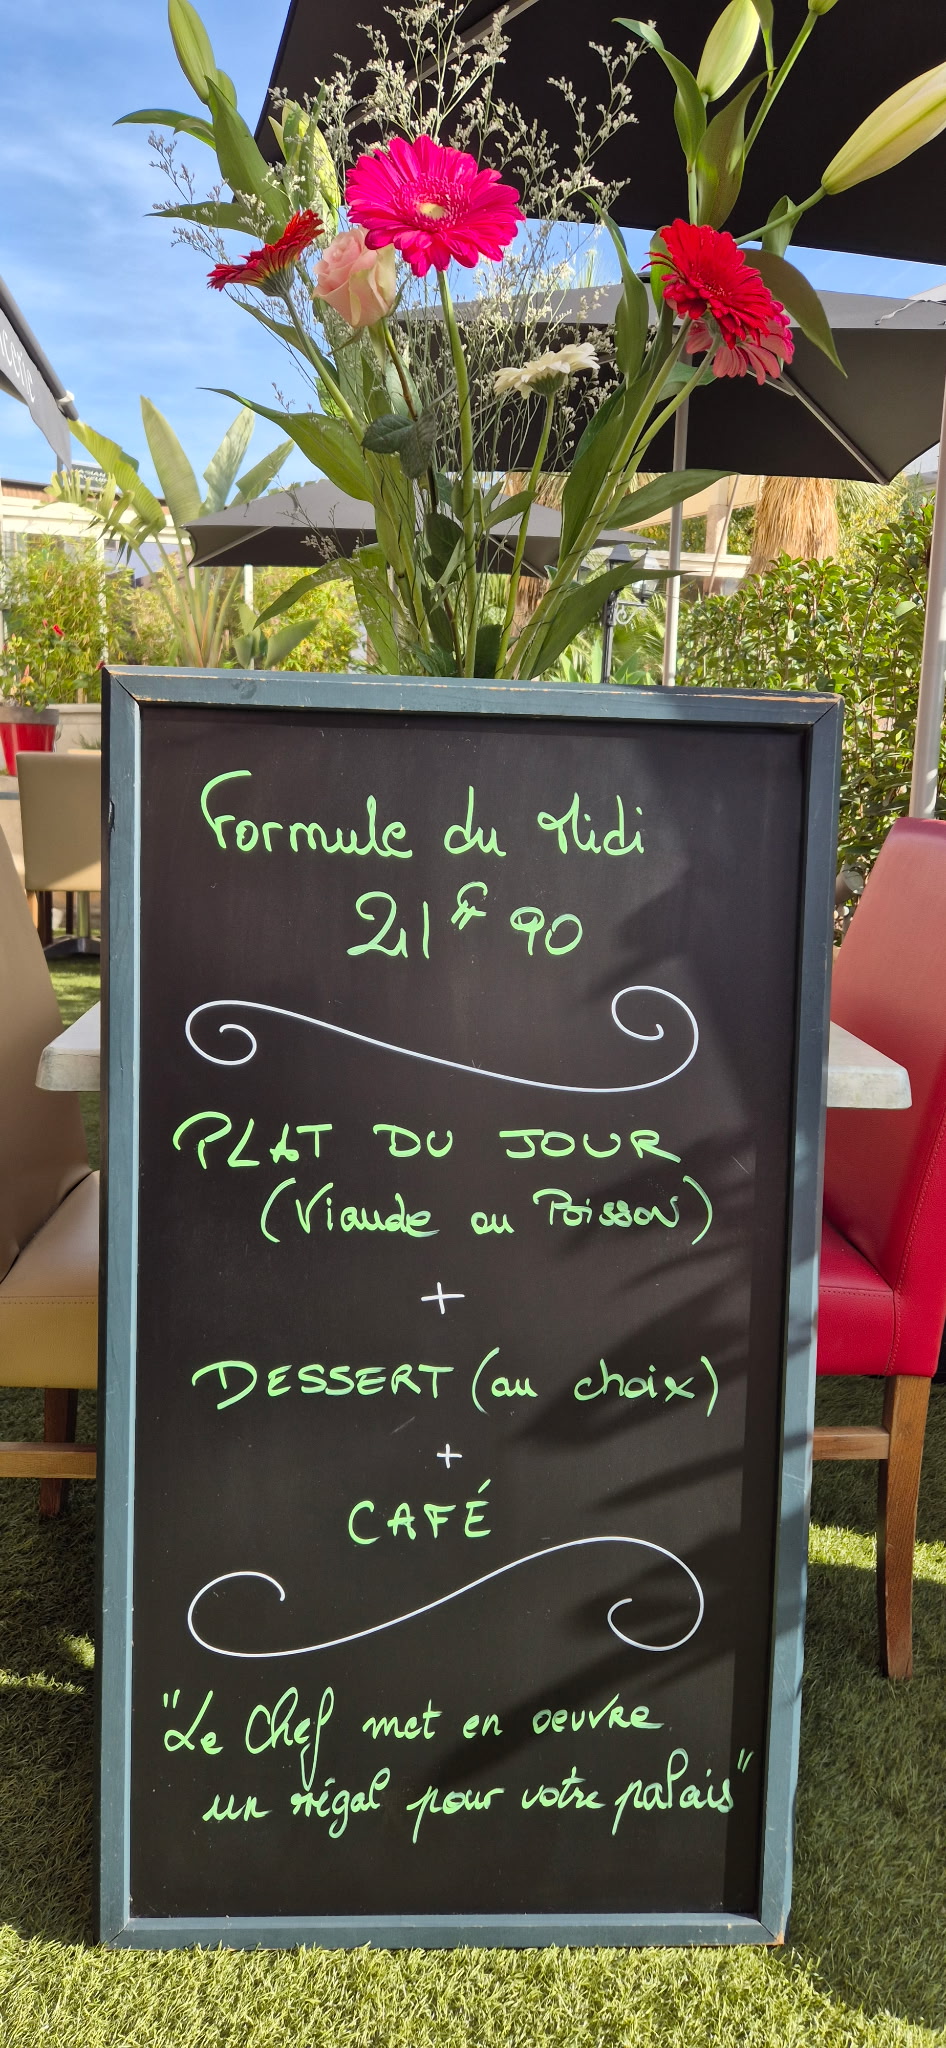 Formule du Midi
21€90
PLAT DU JOUR
(Viande ou Poisson)
+
DESSERT (au choix)
+
CAFÉ
"Le Chef met en oeuvre
un régal pour votre palais"